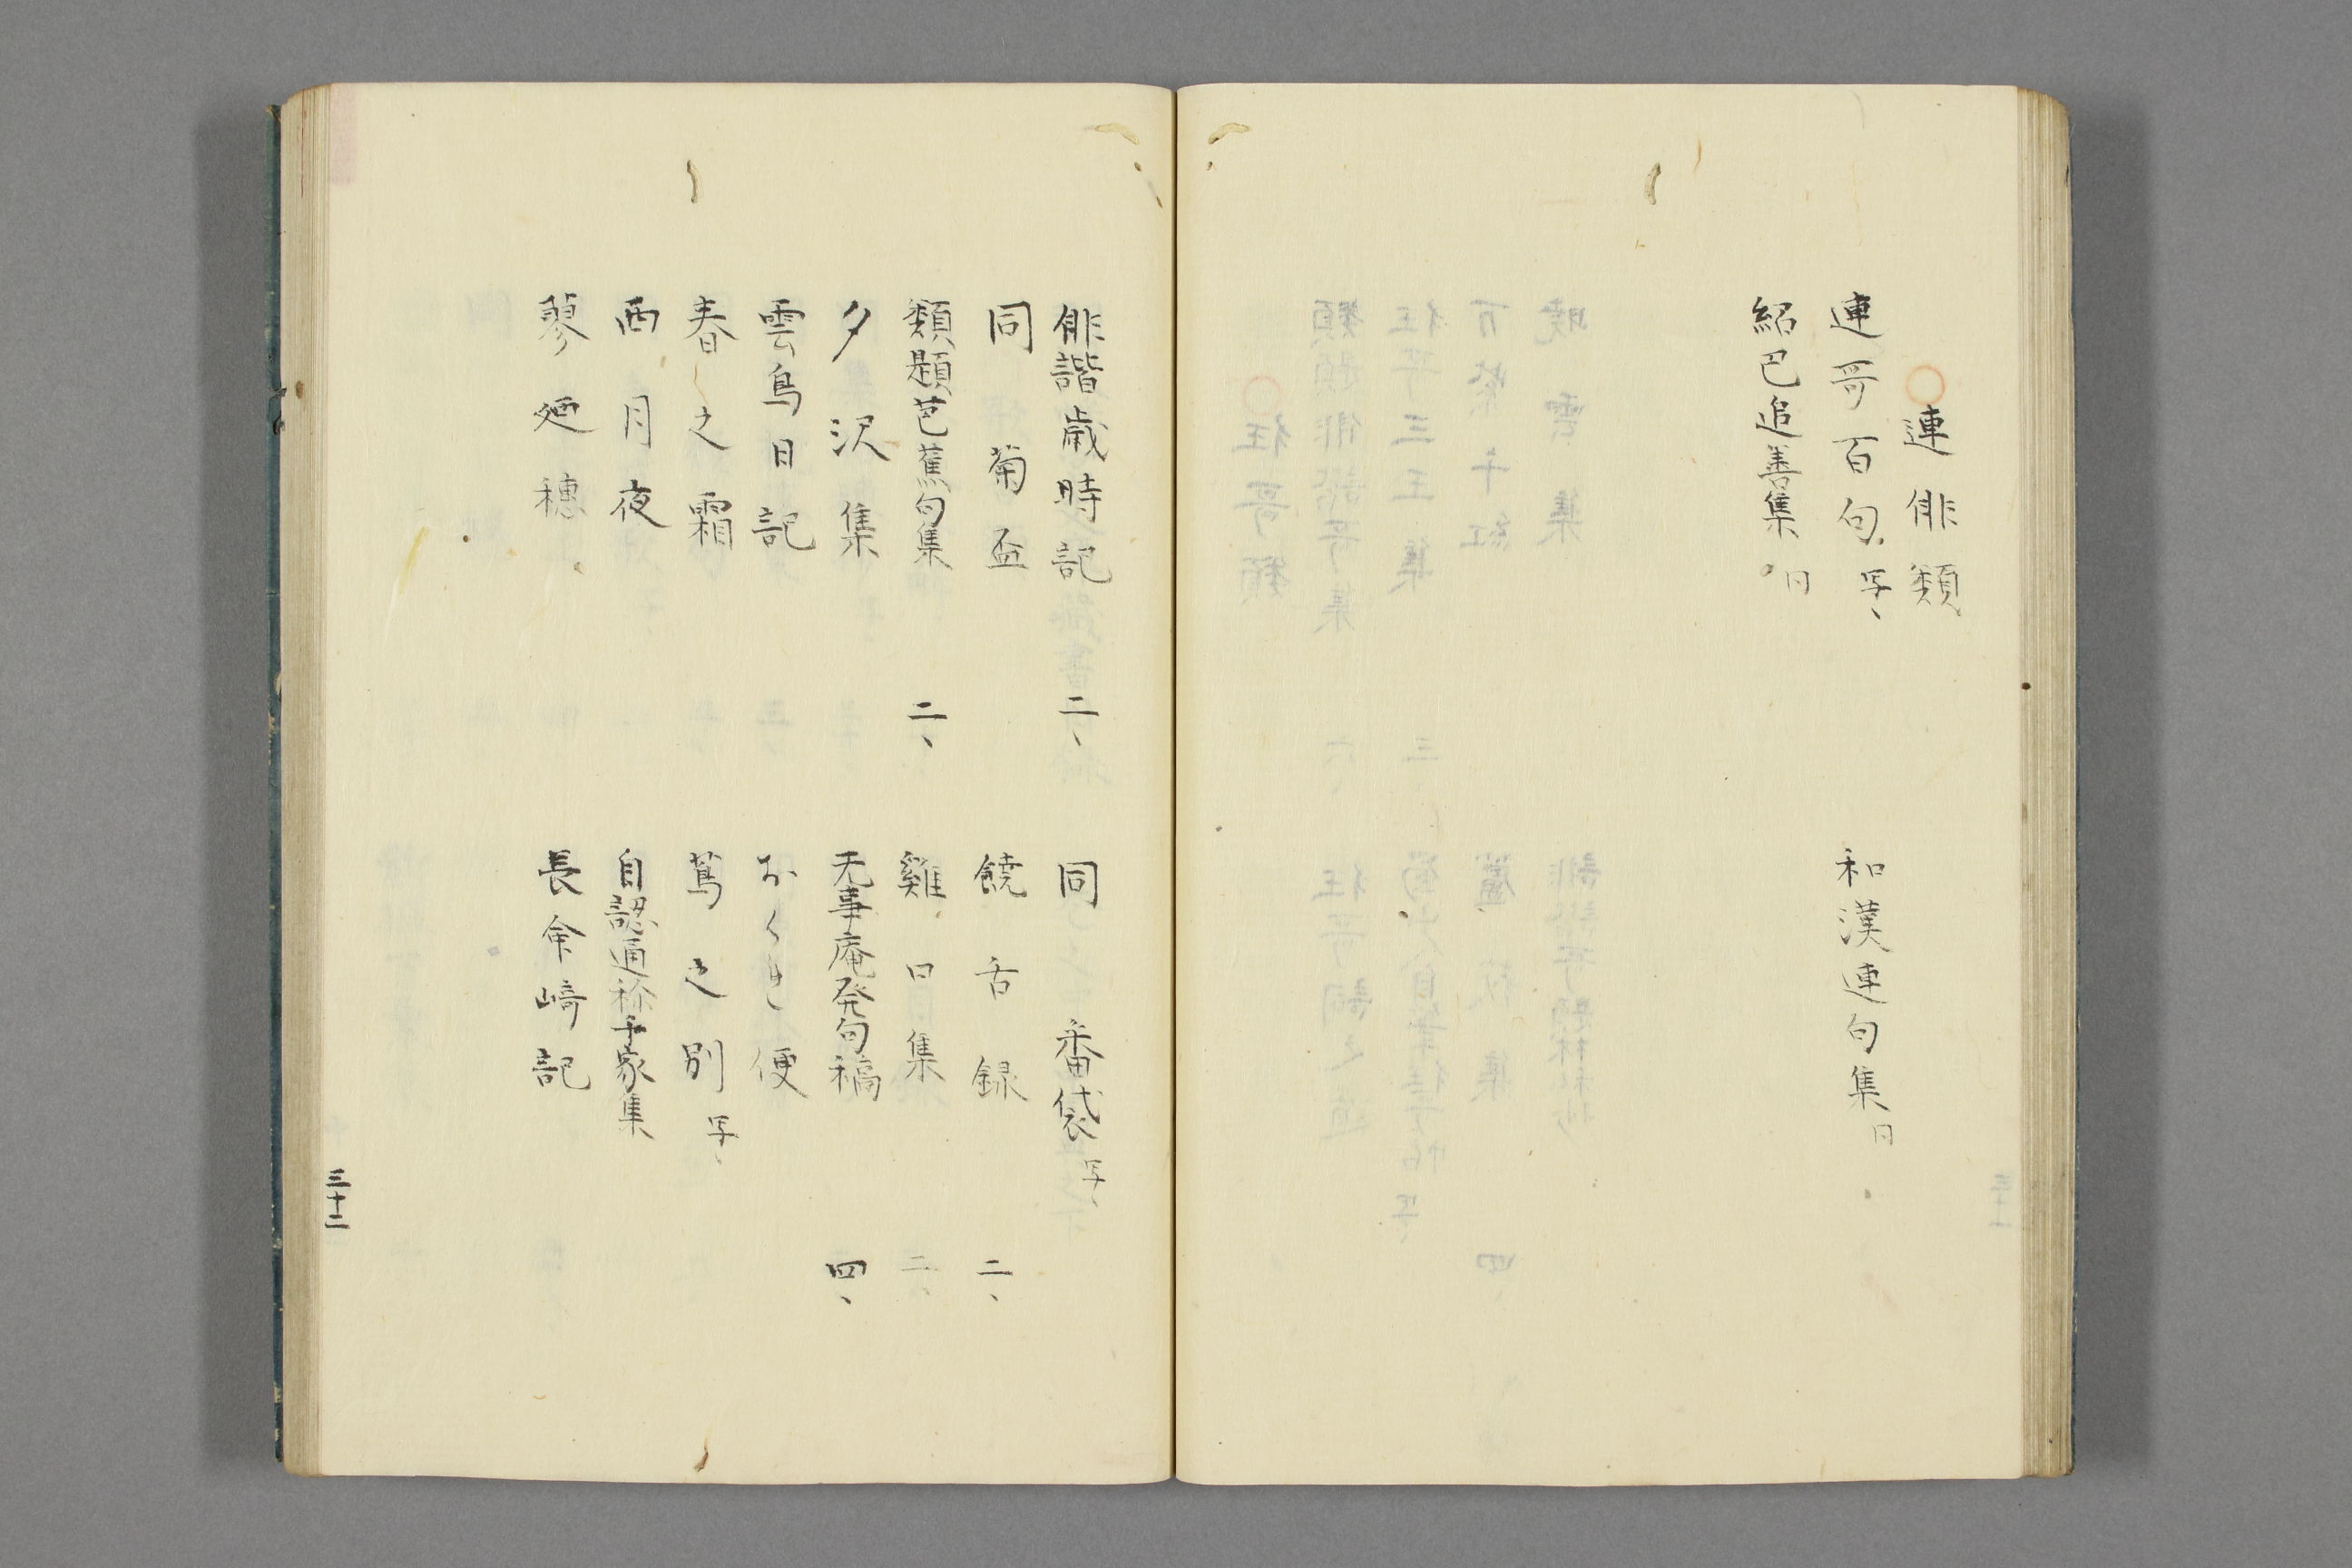 連俳類
連哥百句 写、
和漢連句集 同
紹巴追善集 同
俳諧歳時記 二、
同 番袋 写、
同 菊盃
饒舌録 二、
類題芭蕉句集 二、
雞口集 二、
夕沢集
无事庵発句稿 四、
雲鳥日記
おくれし便
春之霜
蔦之別 写、
西月夜
自認通称千家集
蓼廼穂
長命崎記
三十二